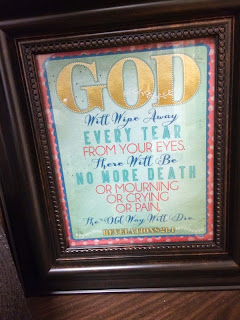 GOD
Will Wipe Away
EVERY TEAR
FROM YOUR EYES.
There Will Be
NO MORE DEATH
OR MOURNING
OR CRYING
OR PAIN,
The Old Way Will Die.
REVELATIONS 21:4